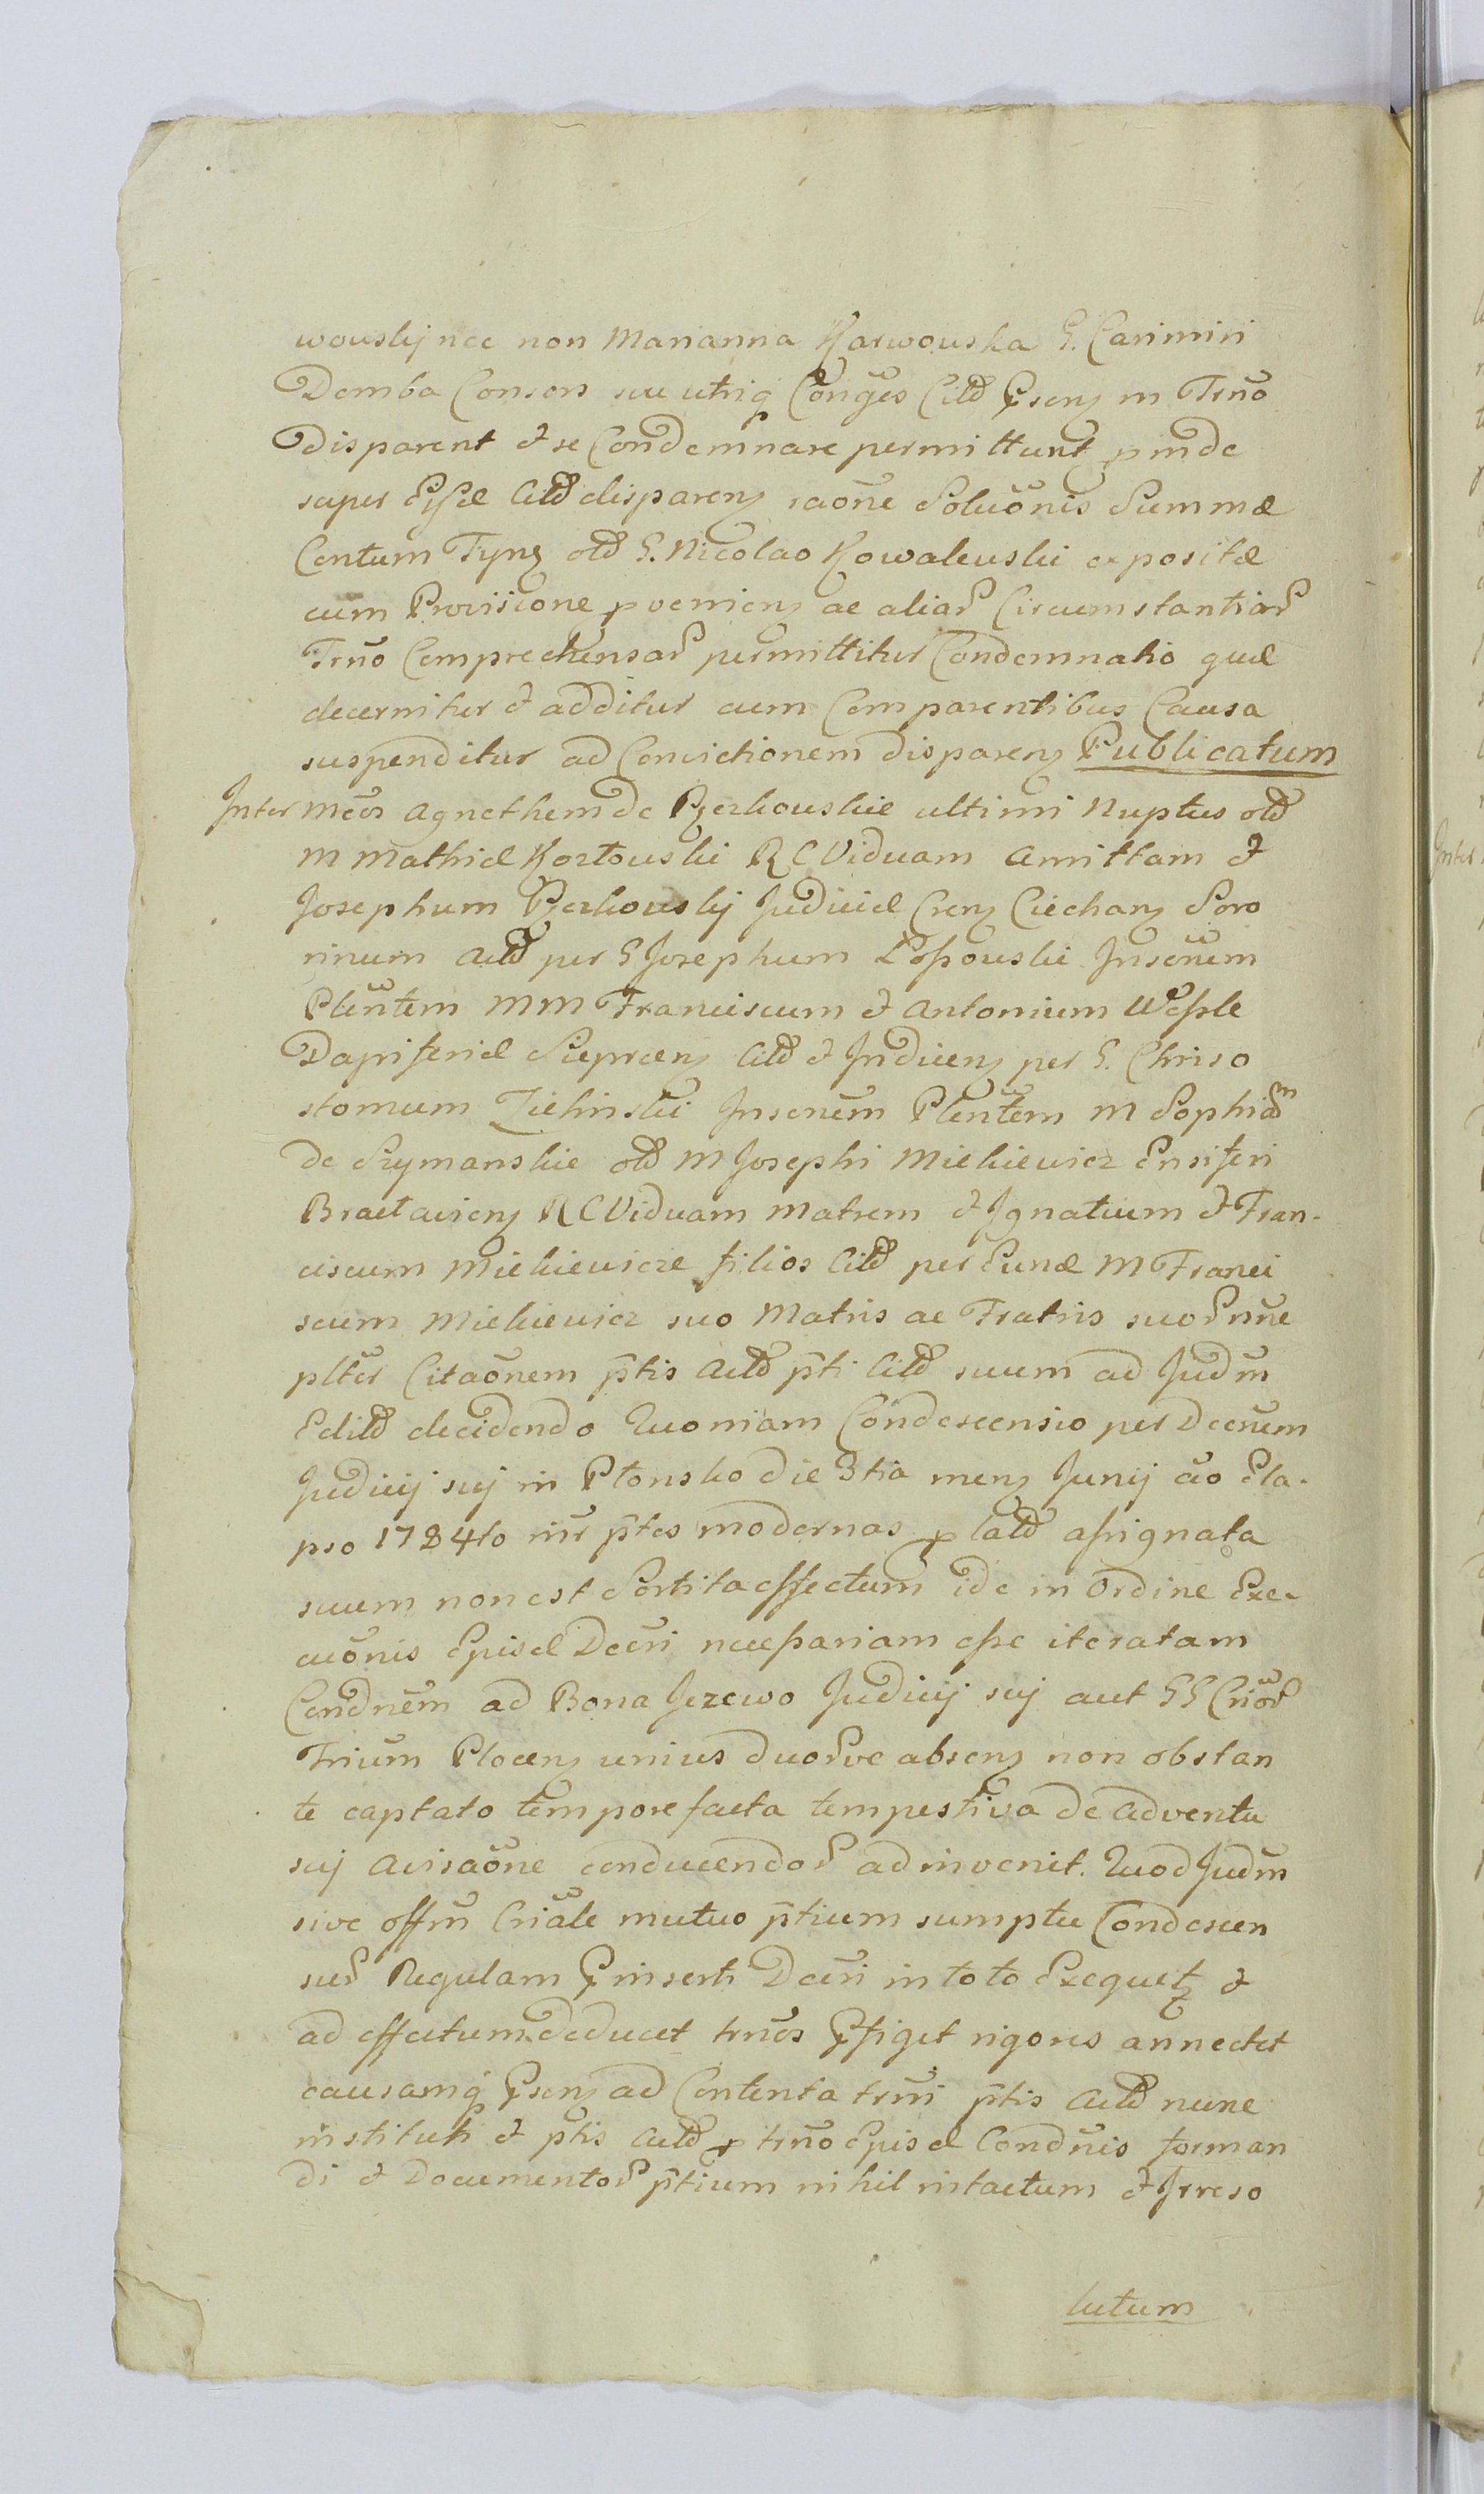 wouskij nec non Marianna Karwouska G. Casimiri
Domba Consors suu utriq Cōnges Citt̃ P̱senʒ in Trn̄o
Disparent & se Condemnare permittunt pmde
super Eisd Citt̃ disparenʒ raōne Soluōnis Summæ
Centum Tynʒ olt̃ G. Nicolao Kowaleuski expositæ
cum Provisione pvenienʒ ac aliar̃ Circumstantiar̃
Trn̄o Comprehensar̃ permittitur Condemnatio quæ
decernitur & additur cum Comparentibus Causa
suspenditur ad Convictionem disparenʒ Publicatum
Inter Mc̄os Agnethem de Pẓerkouskie ultimi Nuptus olt̃
M Mathiæ Koztouski RC Viduam Amittam &
Josephum Pẓerkouskij Judiciæ Crenʒ Ciechanʒ Soro
rinum Actt̃ per G Josephum Loſsouski Insc̄nem
Plen̄tem MM Franciscum & Antonium Weſsle
Dapiferiæ Sieprcenʒ Citt̃ & Indicenʒ per G. Chriso
stomum Zielinski Inscn̄em Plen̄tem M Sophiam
de Szymanskie olt̃ M Josephi Mickiewicz Ensiferi
Braclaviens RC Viduam Matrem & Ignatium & Fran-
ciscum Mickiewicze filios Citt̃ per Eund M Franci
scum Mickiewicz suo Matris ac Fratris suor̃ nn̄e
pltēr Citaōnem p̄tis Actt̃ p̄ti Citt̃ suum ad Judm̄
Editt̃ decidendo Quoniam Condescensio per Decr̄um
Judicij sui in Plonsko die 3tia mens Junij aō Ela-
pso 1784to in̄r p̄tes modernas p latt̃ aſsignata
suum non est Sortita effectum ide in Ordine Exe-
cuōnis Episd Decr̄i neceſsariam eſse iteratam
Condn̄em ad Bona Jezewo Judicij sui aut GG Cn̄or̃
Trium Plocenʒ unius duor̃ve absenʒ non obstan
te captato tempore facta tempestiva de Adventu
sui Avisaōne conducendor̃ adinvenit. Quod Judm̄
sive offm̄ Cn̄ale mutuo p̄tium sumptu Condescen
sur̃ Regulam P̱inserti Decr̄i in toto Exequetʒ &
ad effectum deducet trn̄os P̱figet rigores annectet
causamq P̱senʒ ad Contenta trn̄i p̄tis Actt̃ nunc
instituti & p̄tis Citt̃ p trn̄o Episd Condn̄is forman
di & Documentor̃ p̄tium nihil intactum & Irreso
lutum